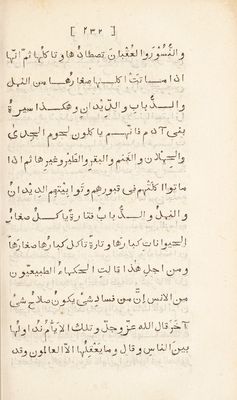 [ ٢٣٢ ]
والنُّسُور والعُقْبان تصطادها وتاكلها ثم انّها
اذا ماتت اكلتها صغارها من النمل
والذُّباب والدِّيدان وهكذا سيرة
بنى آدم فانّهم ياكلون لحوم الجدى
والحِملان والغنم والبقر والطير وغيرها ثم اذا
ماتوا اكلتهم فى قبورهم وتوابيتهم الديدان
والنمل والذُّباب فتارة ياكل صغار
الحيوانات كبارها وتارة تاكل كبارها صغارها
ومن اجل هذا قالت الحكماء الطبيعيون
من الانس إنّ من فساد شىٔ يكون صلاح شىٔ
آخر قال الله عزّ وجلّ وتلك الايّام نداولها
بين الناس وقال وما يعقلها الّا العالمون وقد